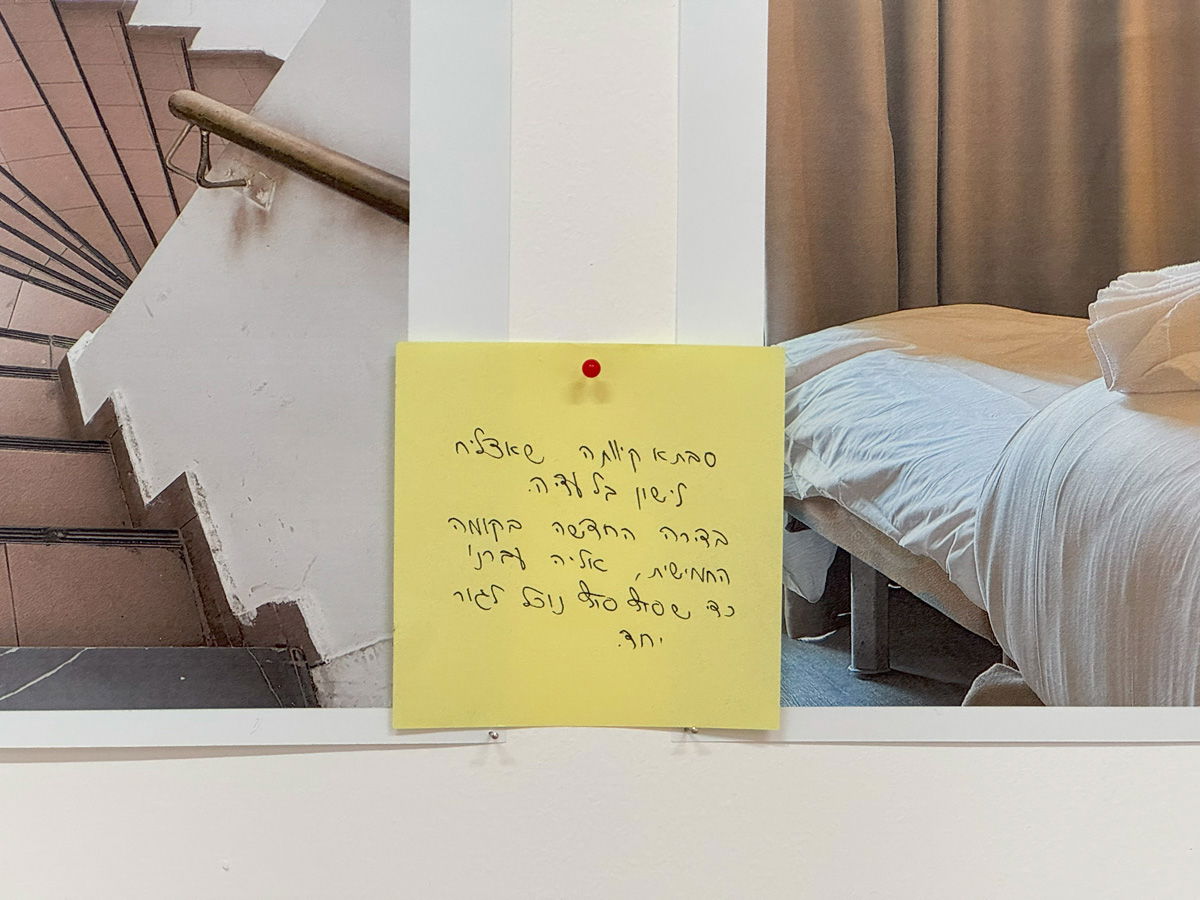 סבתא קיוותה שאצליח
לישון בלעדיה.
בדירה החדשה בקומה
החמישית, אליה עברנו
כדי שסוף סוף נוכל לגור
יחד.